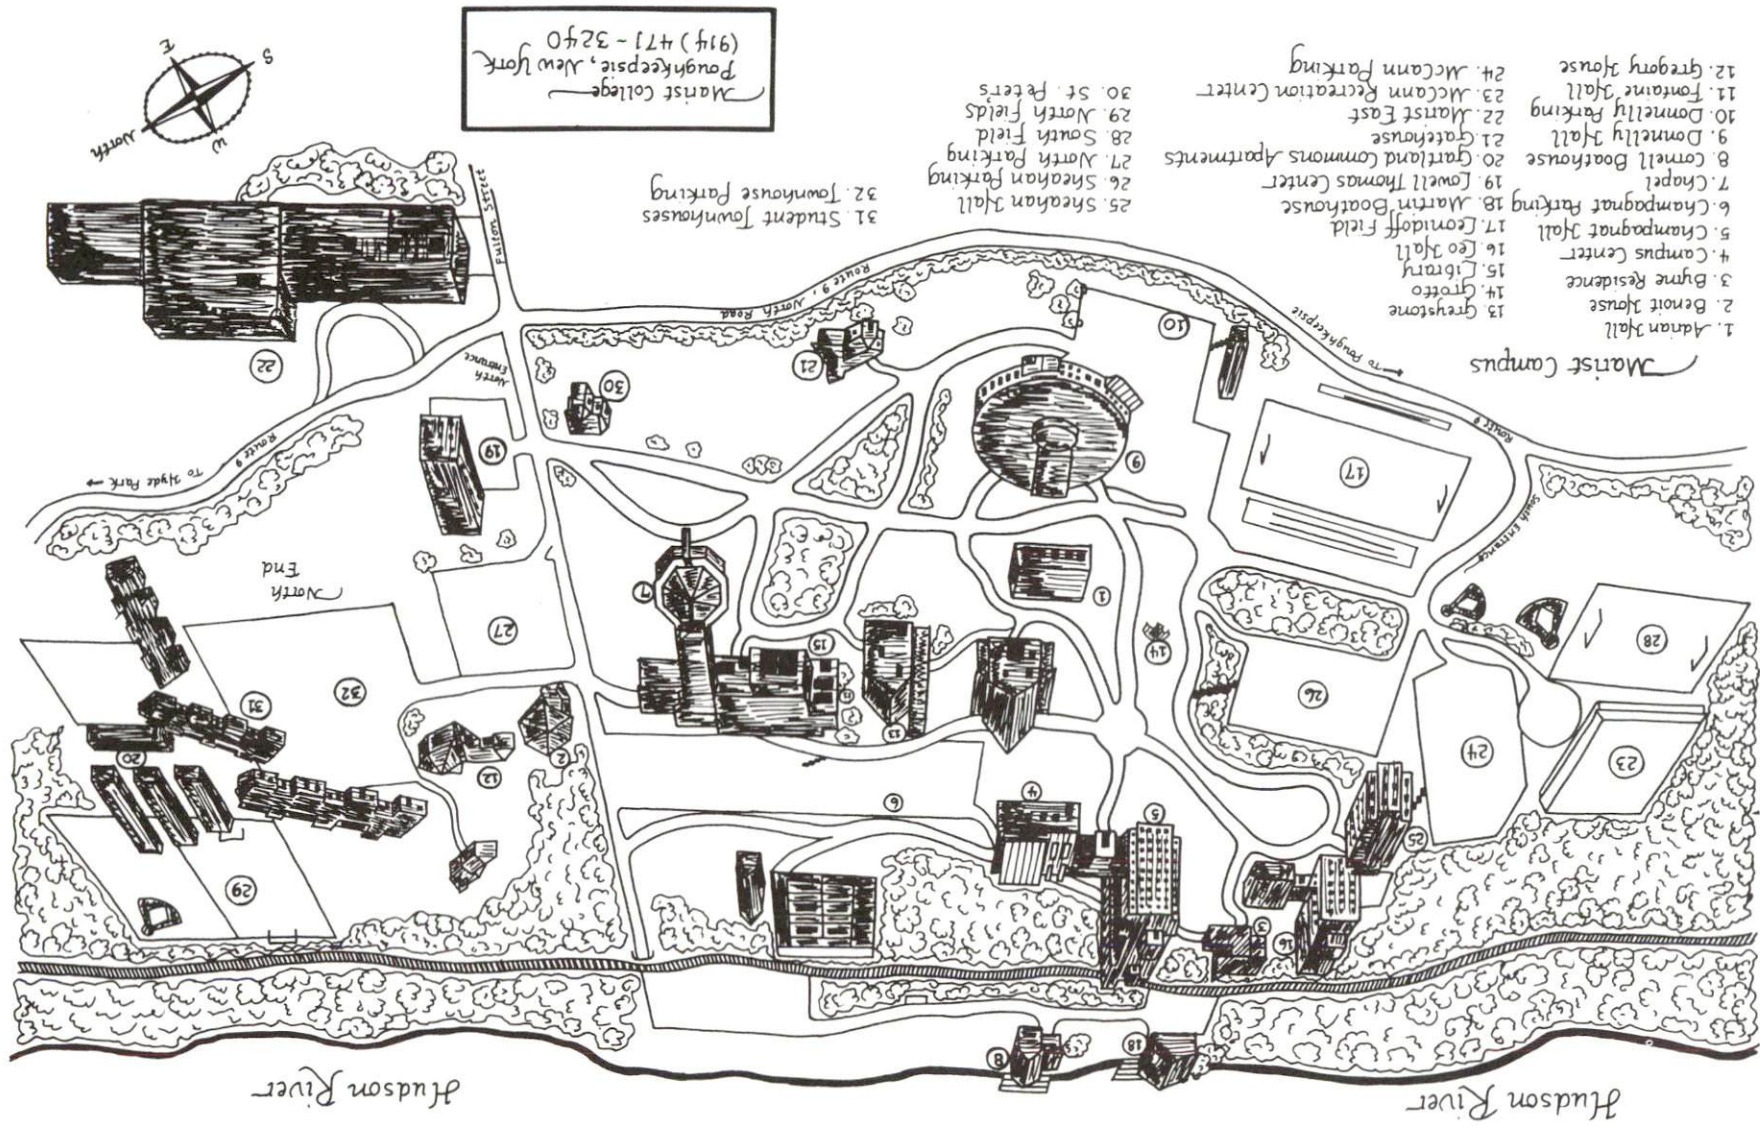 Hudson River
Hudson River
18
8
16
3
29
25
5
4
6
20
23
24
12
2
13
26
32
31
28
14
15
27
7
1
North
End
South Entrance
17
9
19
To Hyde Park
Route 9
30
21
10
22
North
Entrance
To Poughkeepsie
Route 9
Route 9, North Road
Fulton Street
Marist Campus
1. Adrian Hall
2. Benoit House
3. Byrne Residence
4. Campus Center
5. Champagnat Hall
6. Champagnat Parking
7. Chapel
8. Cornell Boathouse
9. Donnelly Hall
10. Donnelly Parking
11. Fontaine Hall
12. Gregory House
13 Greystone
14. Grotto
15. Library
16. Leo Hall
17. Leonidoff Field
18. Martin Boathouse
19. Lowell Thomas Center
20. Gartland Commons Apartments
21. Gatehouse
22. Marist East
23. McCann Recreation Center
24. McCann Parking
25. Sheahan Hall
26. Sheahan Parking
27. North Parking
28. South Field
29. North Fields
30. St. Peter's
31. Student Townhouses
32. Townhouse Parking
Marist College
Poughkeepsie, New York
(914) 471-3240
North
W
S
E